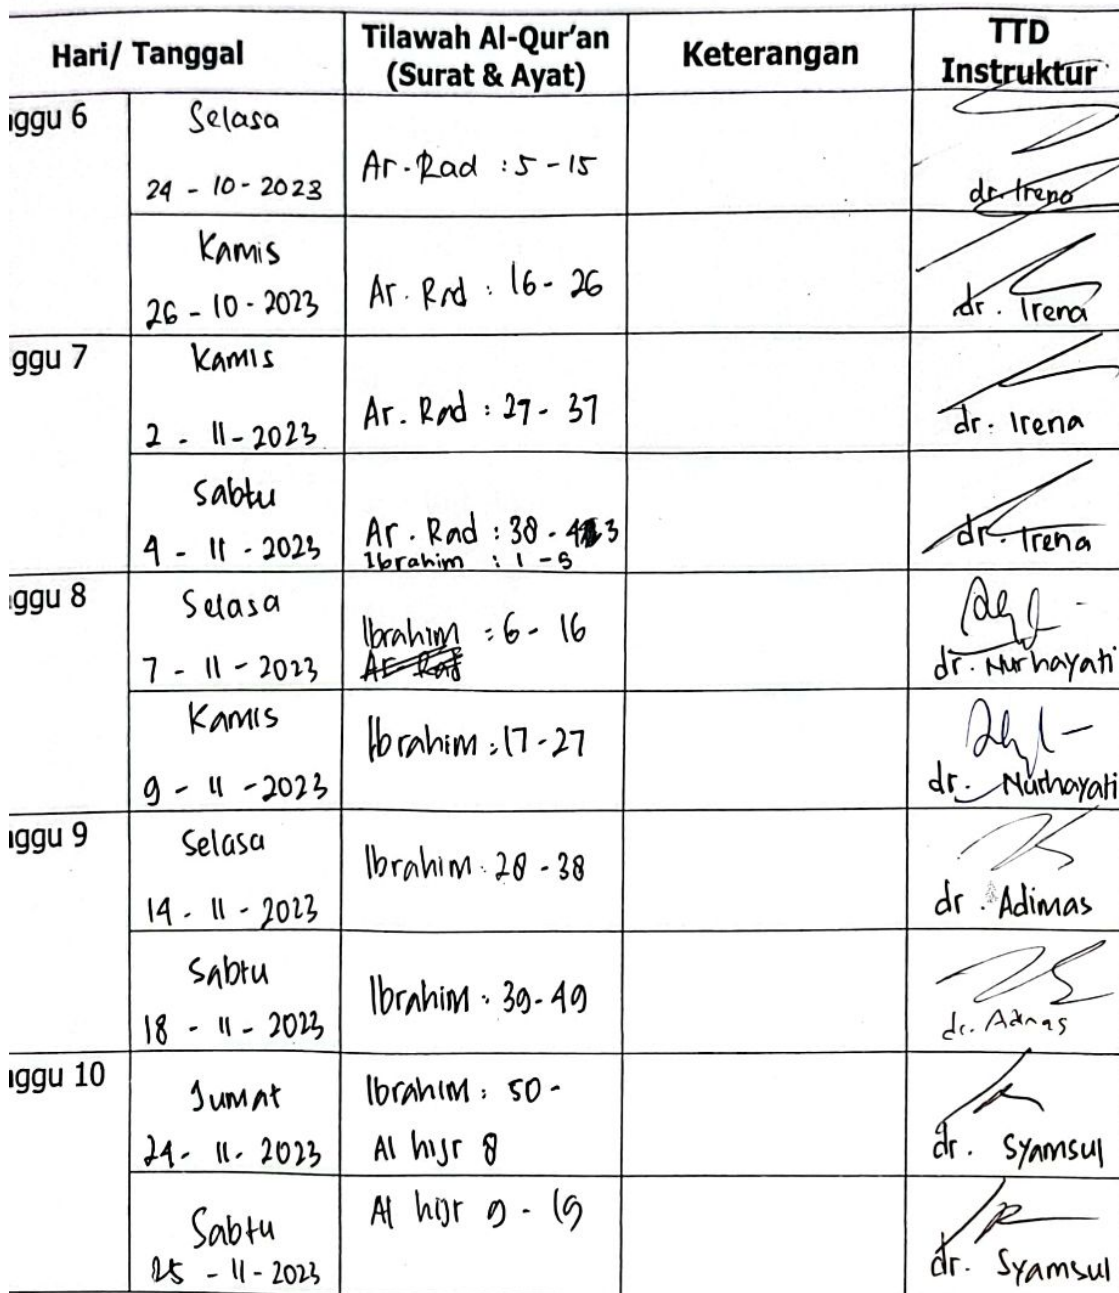 Hari/ Tanggal
Tilawah Al-Qur'an
(Surat & Ayat)
Keterangan
TTD
Instruktur
ggu 6
Selasa
24 - 10 - 2023
Ar. Rad : 5 - 15
dr. Irena
Kamis
26 - 10 - 2023
Ar. Rad : 16 - 26
dr. Irena
ggu 7
Kamis
2 - 11 - 2023
Ar. Rad : 27 - 37
dr. Irena
Sabtu
4 - 11 - 2023
Ar. Rad : 38 - 43
Ibrahim : 1 - 5
dr. Irena
ggu 8
Selasa
7 - 11 - 2023
Ibrahim : 6 - 16
Ar Rad
dr. Nurhayati
Kamis
9 - 11 - 2023
Ibrahim : 17 - 27
dr. Nurhayati
ggu 9
Selasa
14 - 11 - 2023
Ibrahim : 28 - 38
dr. Adimas
Sabtu
18 - 11 - 2023
Ibrahim : 39 - 49
dr. Adimas
ggu 10
Jumat
24 - 11 - 2023
Ibrahim : 50 -
Al hijr 8
dr. Syamsul
Sabtu
25 - 11 - 2023
Al hijr 9 - 19
dr. Syamsul